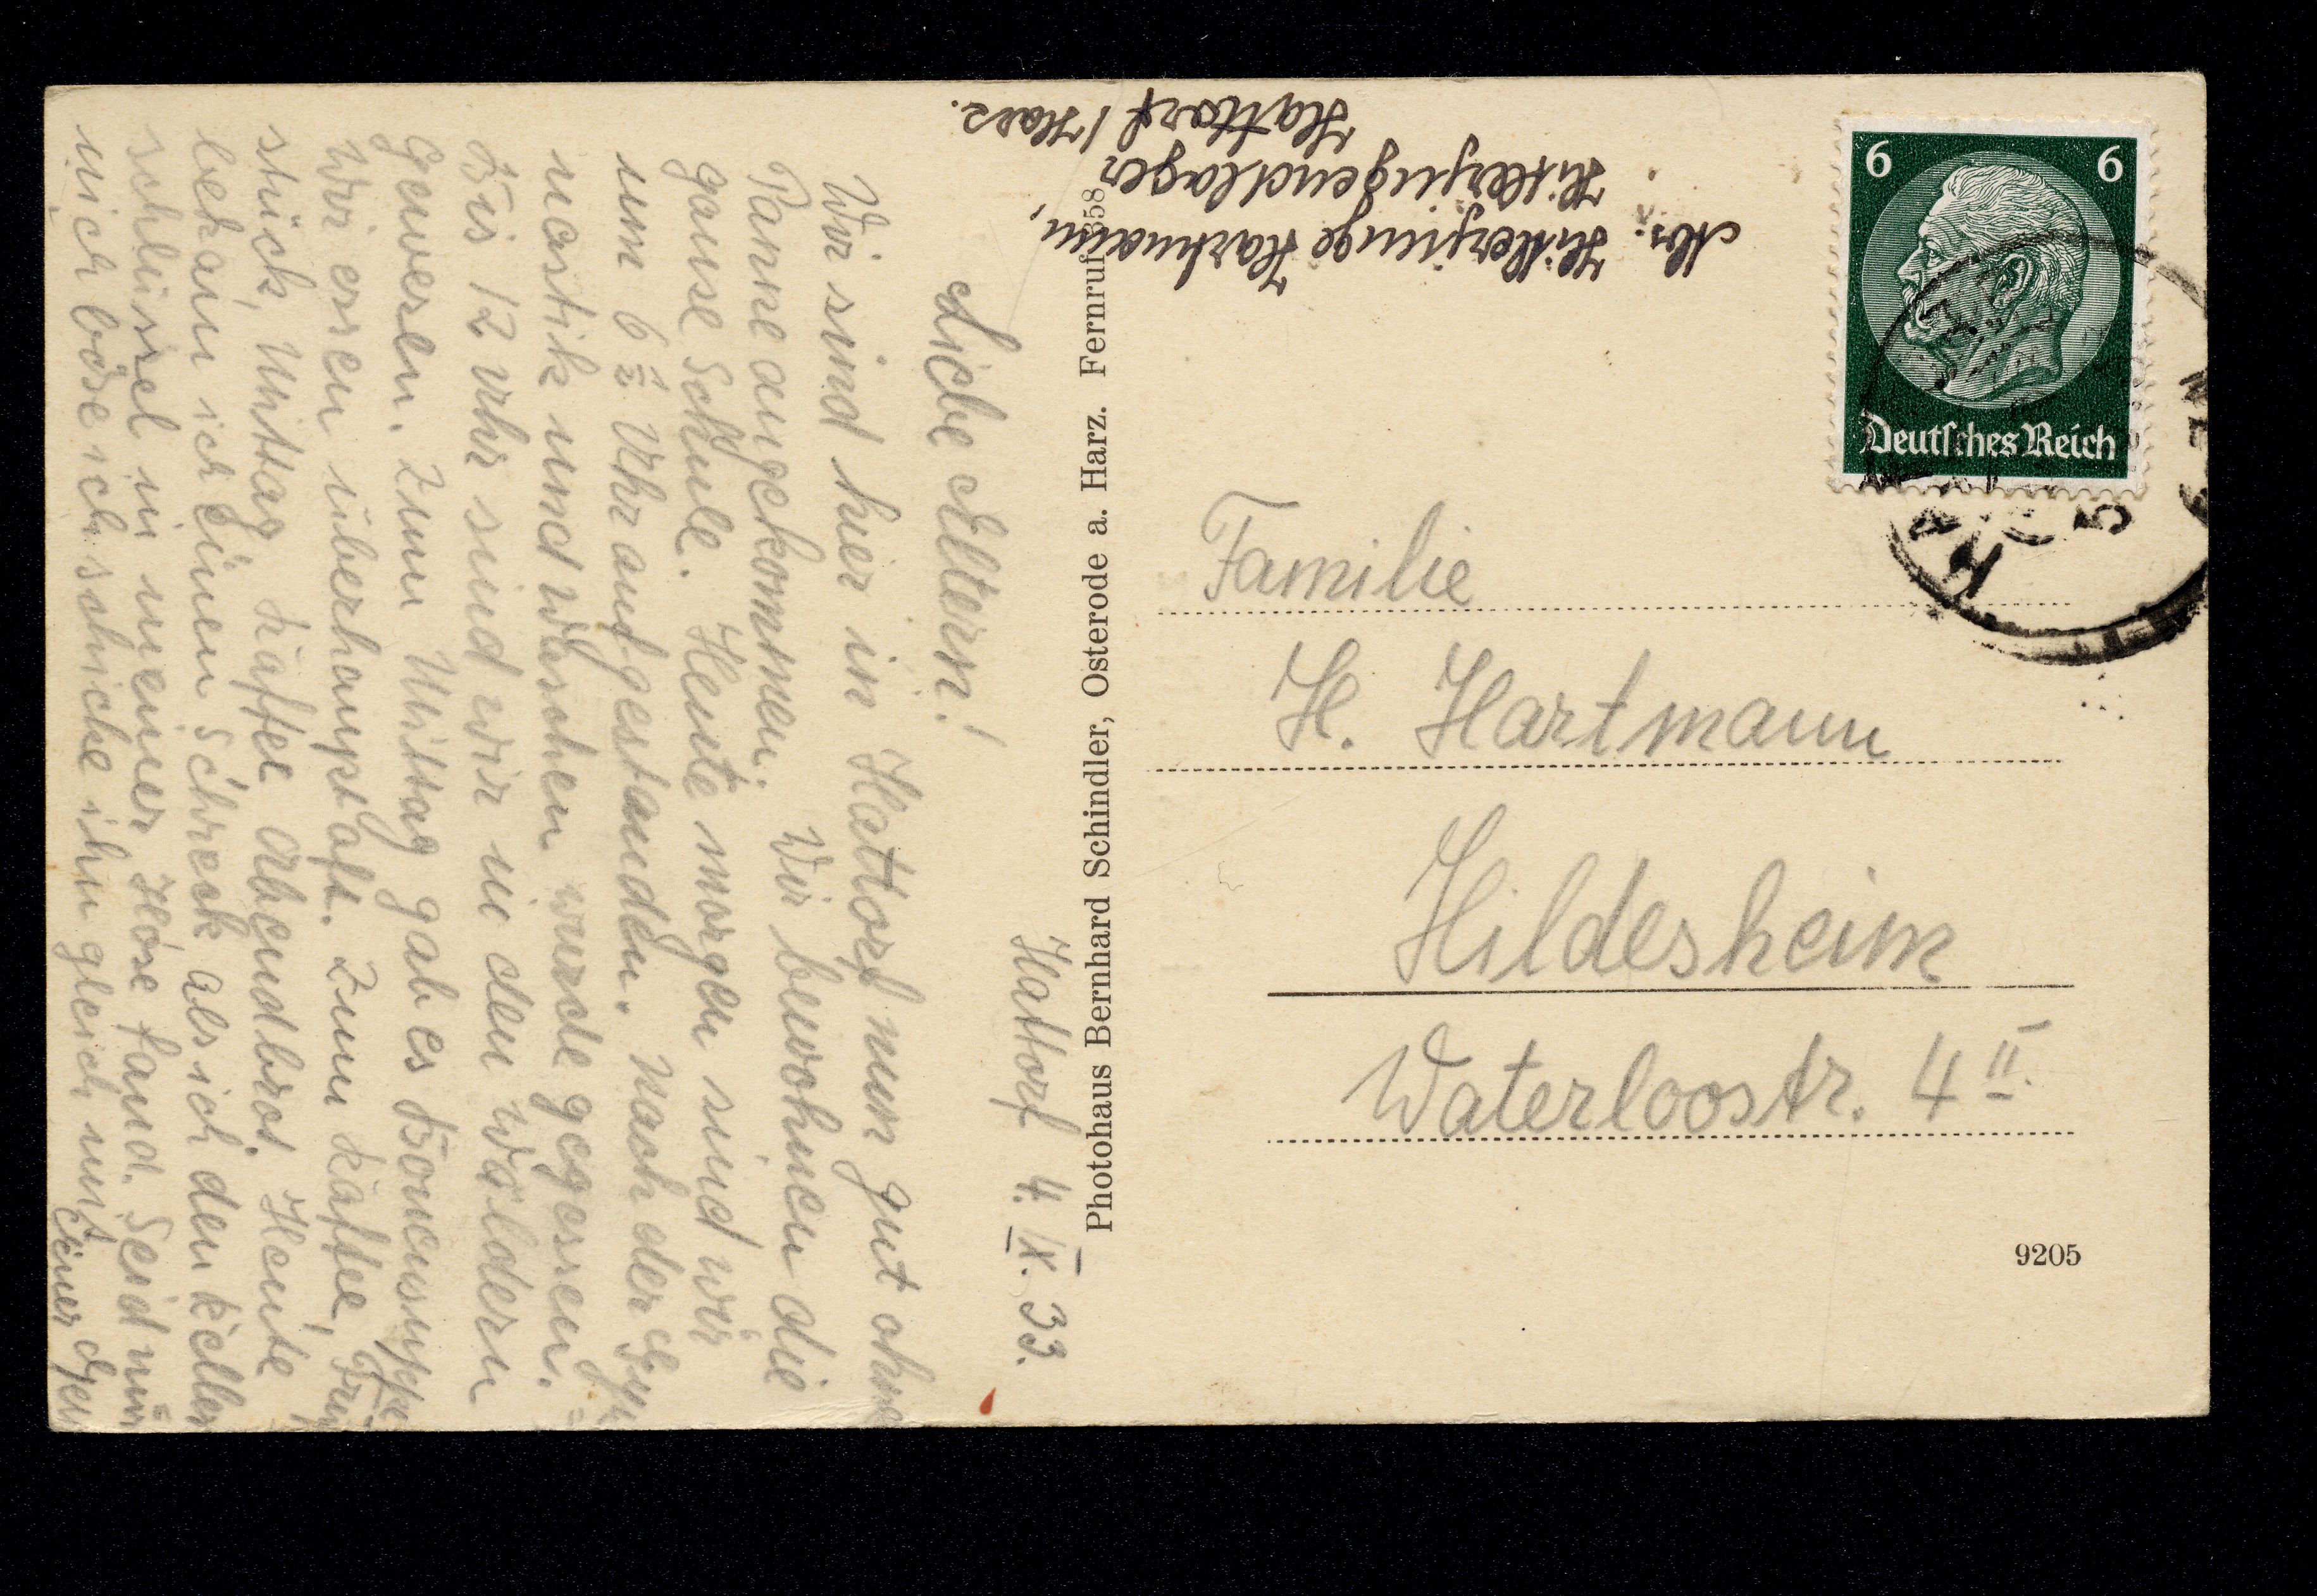 Hattorf 4. IX. 33.
Liebe Eltern!
Wir sind hier in Hattorf nun gut ohne
Panne angekommen. Wir bewohnen die
ganse Schule. Heute morgen sind wir
um 6 Uhr aufgestanden. Nach der Gym
nastik und waschen wurde gegessen.
Bis 12 Uhr sind wir in den Wäldern
gewesen. Zum Mittag gab es Bonensuppe.
Wir essen überhaupt oft. Zum Kaffee, Früh
stück, Mittag, Kaffee Abendbrot. Heute
bekam ich einen Schreck als ich den Keller
schlüssel in meiner Hose fand. Seid nur
nicht böse ich schicke ihn gleich mit
Photohaus Bernhard Schindler, Osterode a. Harz. Fernruf 358
Abs. Hitlerjunge Hartmann,
Hitlerjugendlager
Hattorf / Harz.
6 6
Deutsches Reich
Familie
H. Hartmann
Hildesheim
Waterloostr. 4 II.
9205